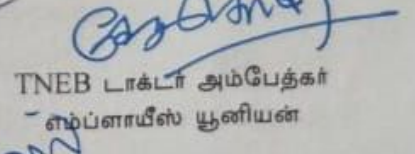 TNEB டாக்டர் அம்பேத்கர்
எம்ப்ளாயீஸ் யூனியன்